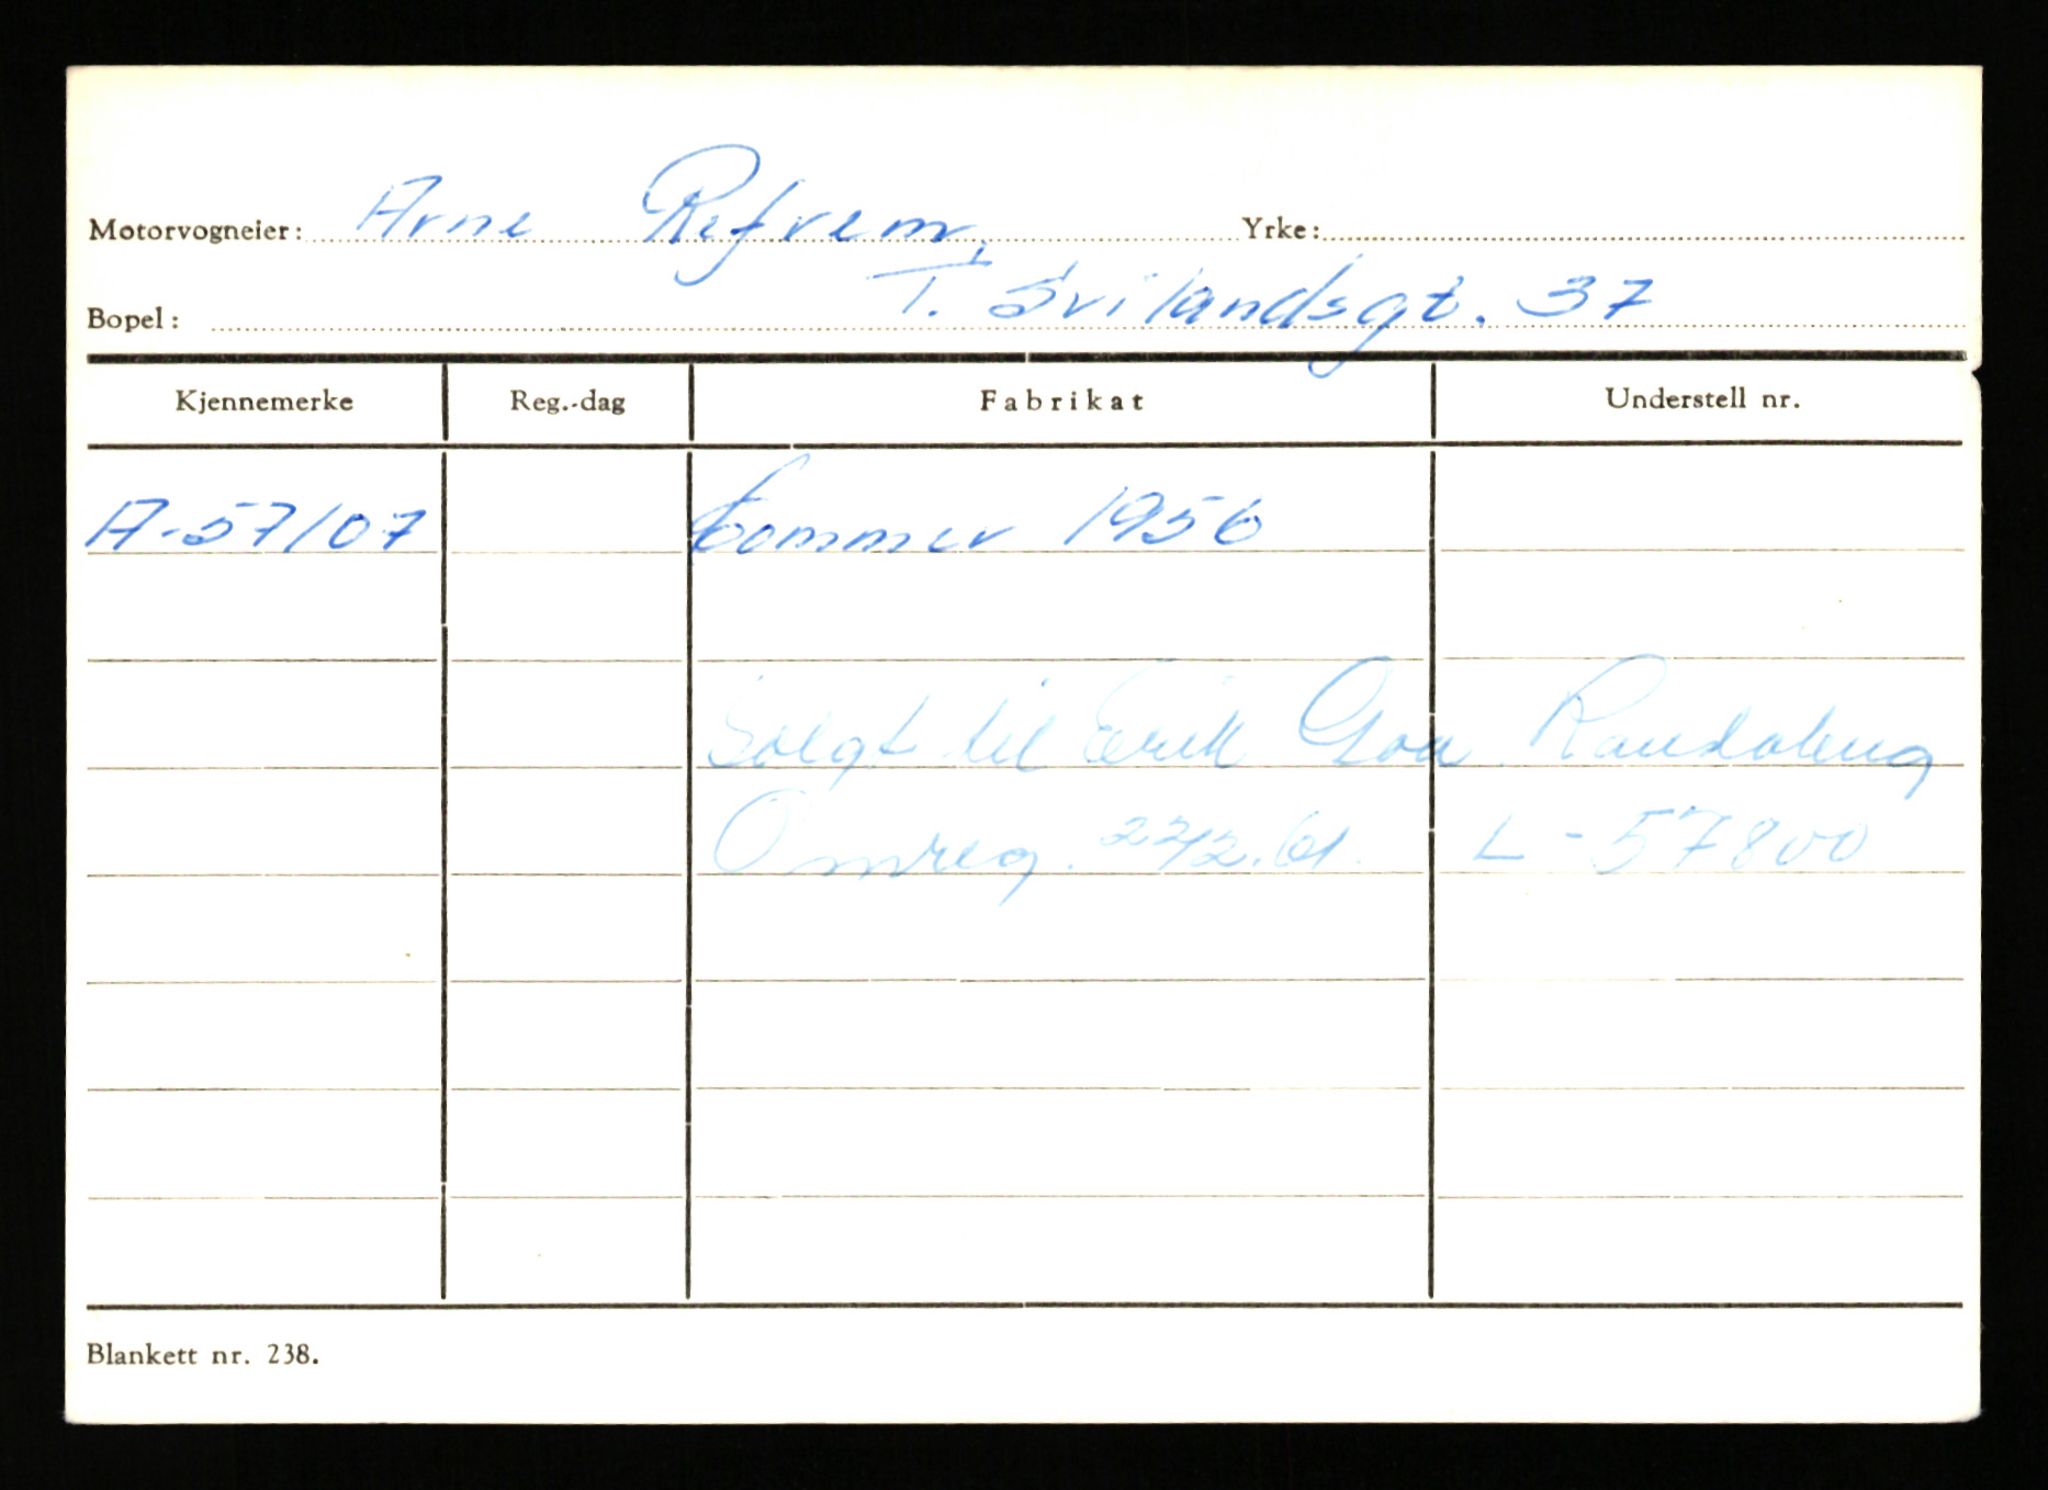 Motorvogneier: Arne Refrem, Yrke:
Bopel: T. Svilandsgt. 37
Kjennemerke Reg.-dag Fabrikat Understell nr.
A-57107 Commer 1956
Solgt til Erik Goa Randaberg
Omreg. 22/2.61. L-57800
Blankett nr. 238.